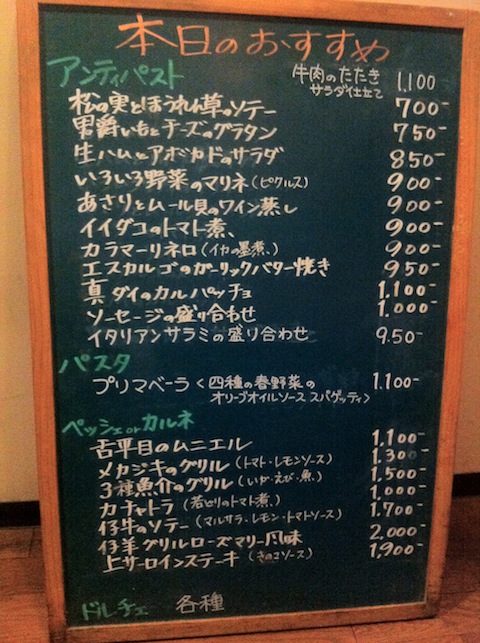 本日のおすすめ
アンティパスト 牛肉のたたき 1,100
サラダ仕立て
松の実とほうれん草のソテー 700-
男爵いもとチーズのグラタン 750-
生ハムとアボカドのサラダ 850-
いろいろ野菜のマリネ(ピクルス) 900-
あさりとムール貝のワイン蒸し 900-
イイダコのトマト煮、 900-
カラマーリネロ(イカの墨煮、) 900-
エスカルゴのガーリックバター焼き 950-
真ダイのカルパッチョ 1,100-
ソーセージの盛り合わせ 1,000-
イタリアンサラミの盛り合わせ 9.50-
パスタ
プリマベーラ<四種の春野菜の 1,100-
オリーブオイルソース スパゲッティ>
ペッシェorカルネ
舌平目のムニエル 1,100-
メカジキのグリル(トマト・レモンソース) 1,300-
3種魚介のグリル(いか・えび・魚、) 1,500-
カチャトラ(若どりのトマト煮、) 1,000-
仔牛のソテー(マルサラ・レモン・トマトソース) 1,700-
仔羊グリルローズマリー風味 2,000-
上サーロインステーキ(きのこソース) 1,900-
ドルチェ 各種